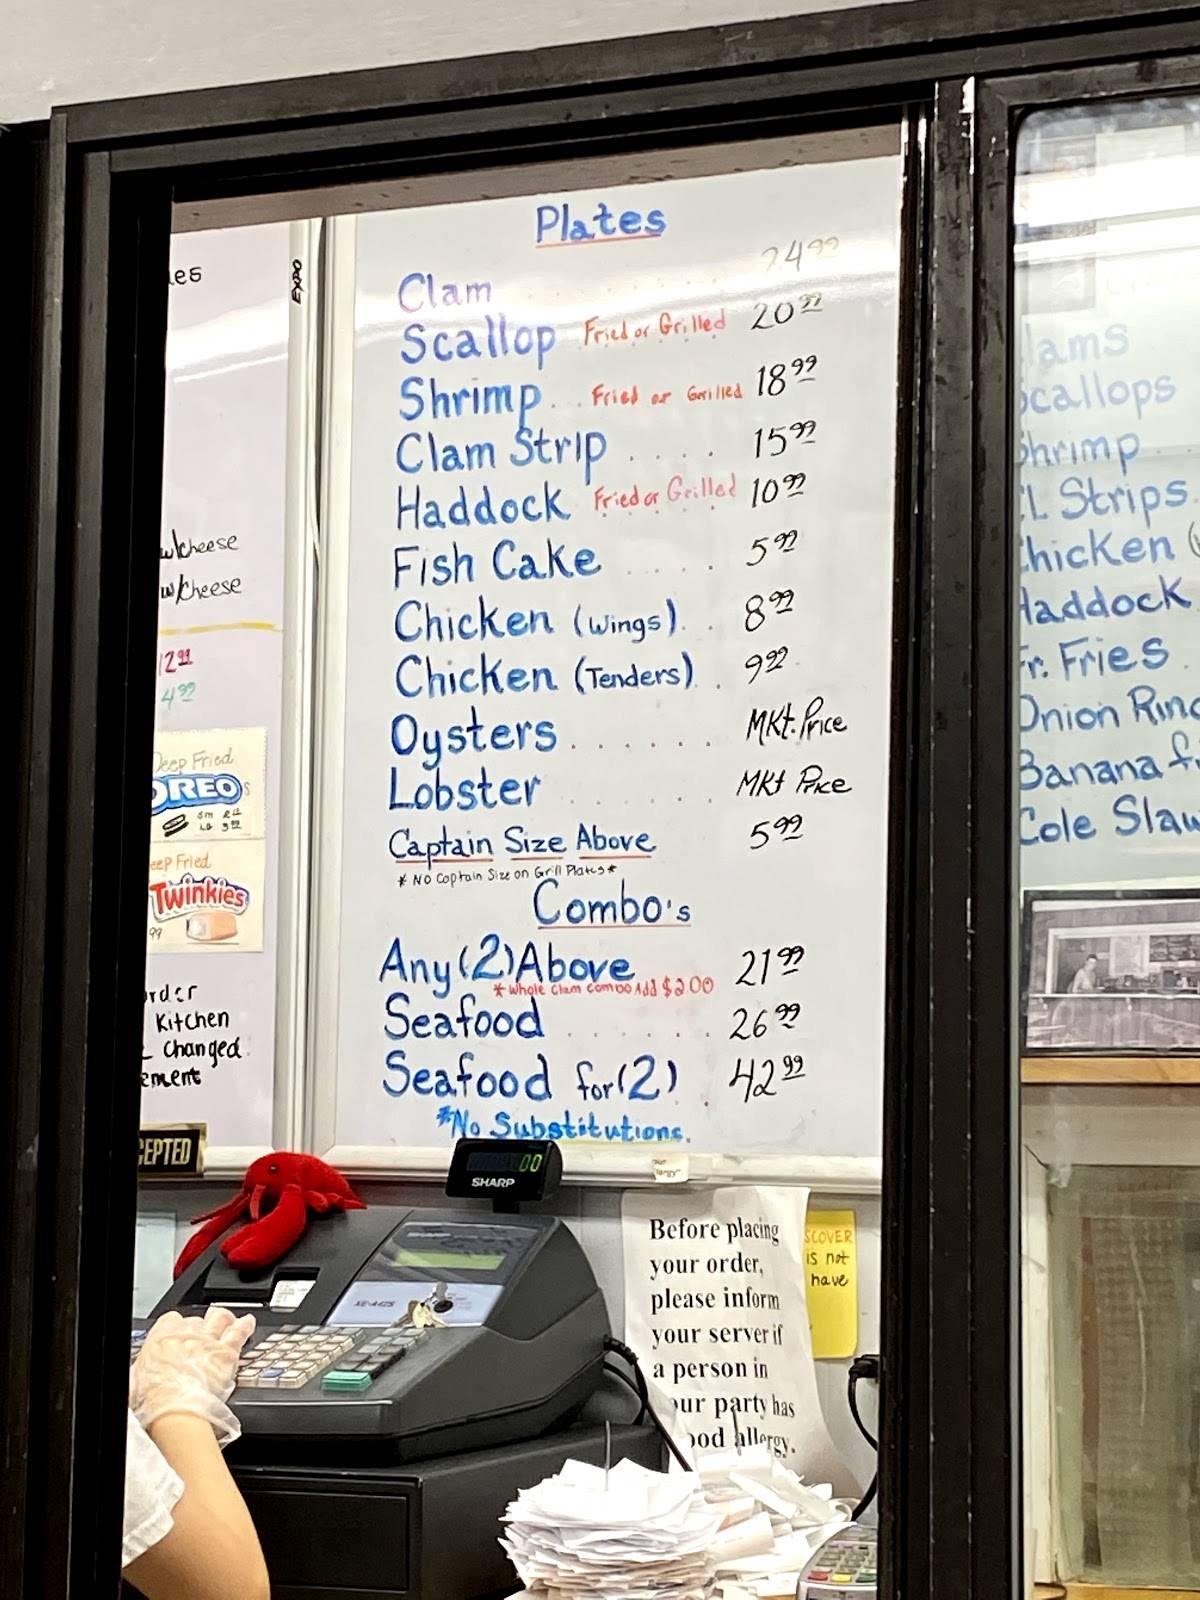 EXPO
w/cheese
w/cheese
12.99
4.99
Deep Fried
OREO s
sm
LG 3.99
Deep Fried
Twinkies
99
order
Kitchen
Changed
EPTED
Plates
Clam . . . . . . 24.99
Scallop Fried or Grilled 20.99
Shrimp . . Fried or Grilled 18.99
Clam Strip . . . . 15.99
Haddock Fried or Grilled 10.99
Fish Cake . . . . 5.99
Chicken (Wings) . . 8.99
Chicken (Tenders) . . 9.99
Oysters . . . . . . MKt. Price
Lobster . . . . . . MKt Price
Captain Size Above 5.99
* No Captain Size on Grill Plates *
Combo's
Any (2) Above 21.99
* Whole Clam combo Add $2.00
Seafood . . . . . . 26.99
Seafood for (2) . . 42.99
*No Substitutions.
lams
Scallops
Shrimp
CL Strips
Chicken (
Haddock
Fr. Fries
Onion Ring
Banana
Cole Slaw
00
SHARP
SHARP
XE-A42S
Before placing
your order,
please inform
your server if
a person in
our party has
ood allergy.
SCOVER
is not
have